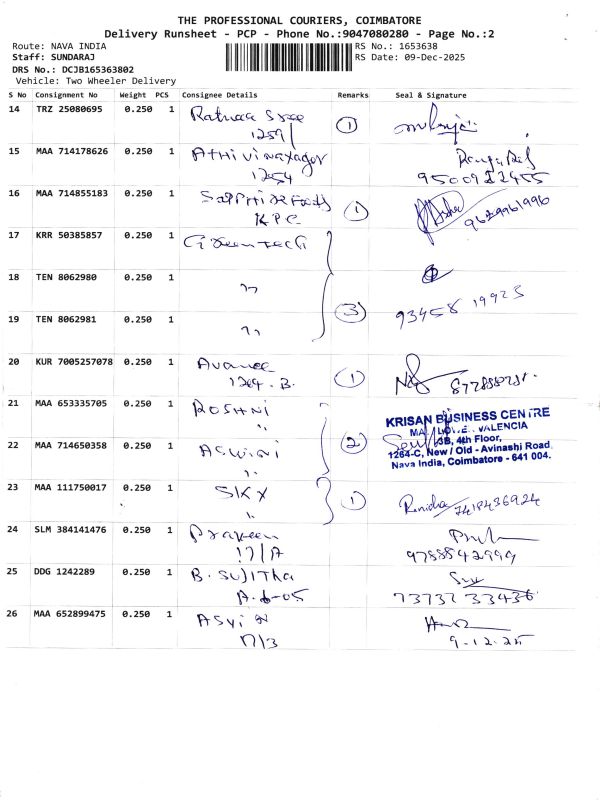 THE PROFESSIONAL COURIERS, COIMBATORE
Delivery Runsheet - PCP - Phone No.:9047080280 - Page No.:2
Route: NAVA INDIA
RS No.: 1653638
Staff: SUNDARAJ
RS Date: 09-Dec-2025
DRS No.: DCJB165363802
Vehicle: Two Wheeler Delivery
S No Consignment No Weight PCS Consignee Details Remarks Seal & Signature
14 TRZ 25080695 0.250 1 Ratnaa Sree 1
1259/
15 MAA 714178626 0.250 1 Athivinayagar
1254
16 MAA 714855183 0.250 1 Sapphire Foods 1 9629961996
KPC
17 KRR 50385857 0.250 1 Greentech
18 TEN 8062980 0.250 1 "
3 93458 19923
19 TEN 8062981 0.250 1 "
20 KUR 7005257078 0.250 1 Avanee 1
1264.B.
21 MAA 653335705 0.250 1 ROSHNI
"
KRISAN BUSINESS CENTRE
VALENCIA
22 MAA 714650358 0.250 1 ASWINI 2 3B, 4th Floor,
" 1264-C, New / Old - Avinashi Road,
Nava India, Coimbatore - 641 004.
23 MAA 111750017 0.250 1 SKX 1 7418436924
"
24 SLM 384141476 0.250 1 Praveen
17/A 9788842999
25 DDG 1242289 0.250 1 B. SUJITha
A.6-05 73737 33436
26 MAA 652899475 0.250 1
17/3 9.12.25